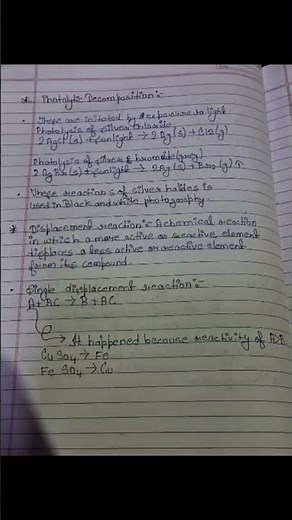 * Photolytic Decomposition:-
• These are initated by the exposure to light
Photolysis of silver chloride
2 AgCl(s) + sunlight → 2 Ag(s) + Cl2(g)
Photolysis of silver bromide (grey)
2 AgBr(s) + sunlight → 2 Ag(s) + Br2(g)
• These reactions of silver halides is
used in Black and white photography.
* Displacement reaction:- A chemical reaction
in which a more active or reactive element
displaces a less active or reactive element
from its compound.
• Single displacement reaction:-
A + BC → B + AC
→ It happened because reactivity of A>B
CuSO4 → Fe
FeSO4 → Cu